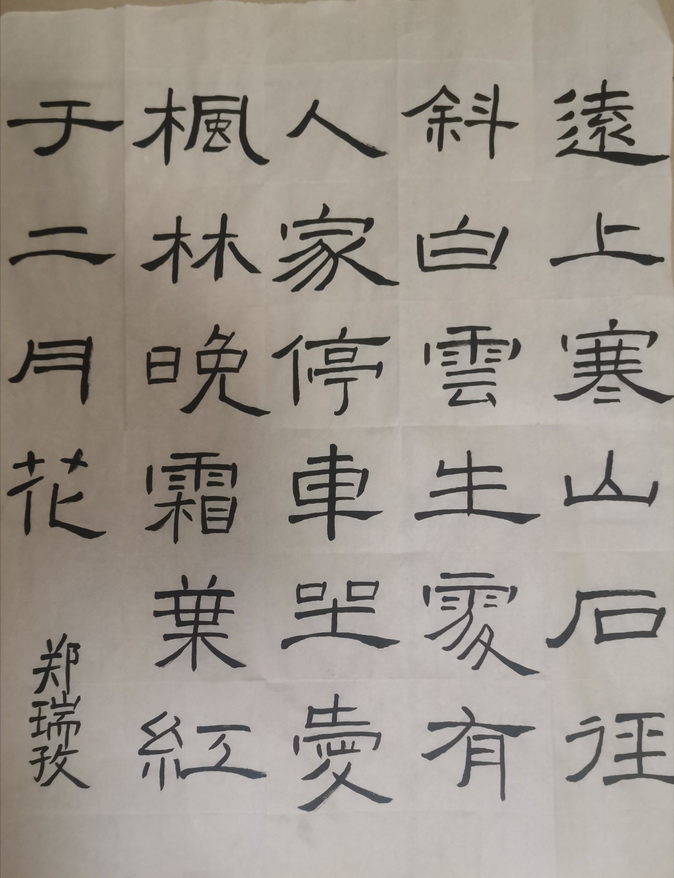 遠上寒山石径
斜白雲生處有
人家停車坐愛
楓林晚霜葉紅
于二月花
郑瑞孜